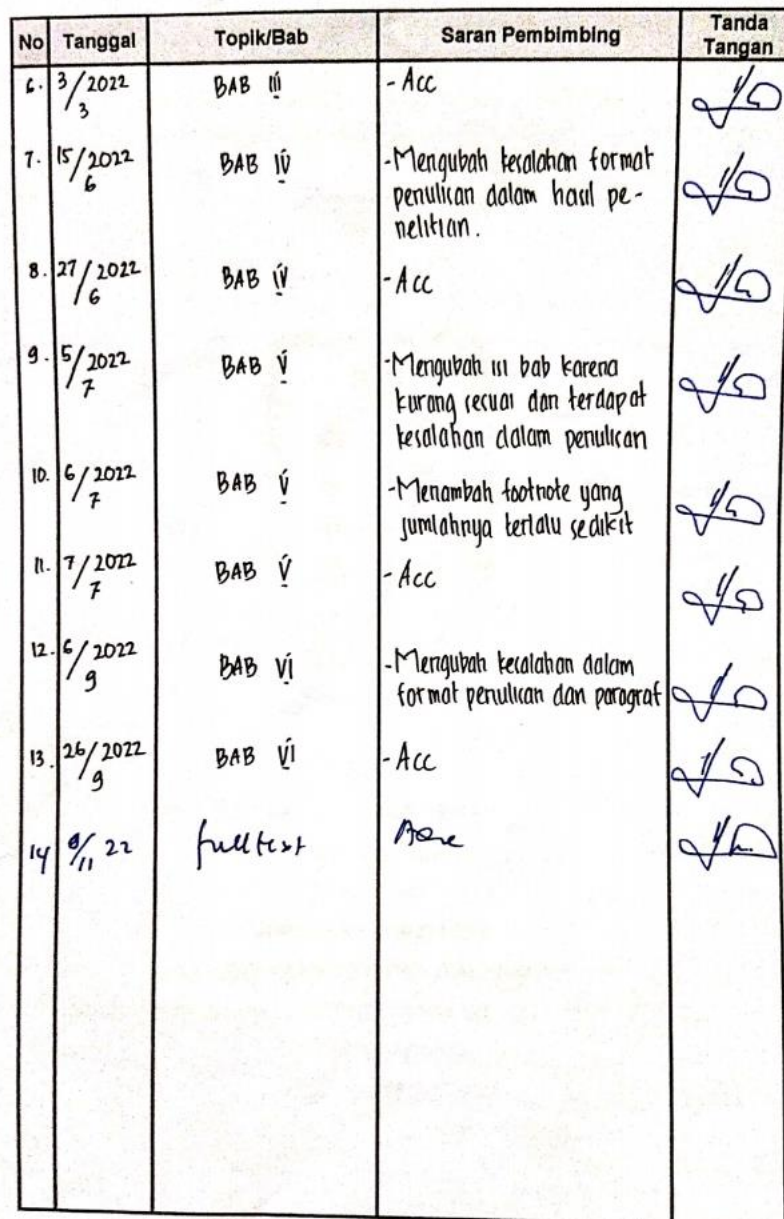 No Tanggal Topik/Bab Saran Pembimbing Tanda Tangan
6. 3/3 2022 BAB III - Acc
7. 15/6 2022 BAB IV - Mengubah kesalahan format
penulisan dalam hasil pe-
nelitian.
8. 27/6 2022 BAB IV - Acc
9. 5/7 2022 BAB V - Mengubah isi bab karena
kurang sesuai dan terdapat
kesalahan dalam penulisan
10. 6/7 2022 BAB V - Menambah footnote yang
jumlahnya terlalu sedikit
11. 7/7 2022 BAB V - Acc
12. 6/9 2022 BAB VI - Mengubah kesalahan dalam
format penulisan dan paragraf
13. 26/9 2022 BAB VI - Acc
14 /11 22 fulltext